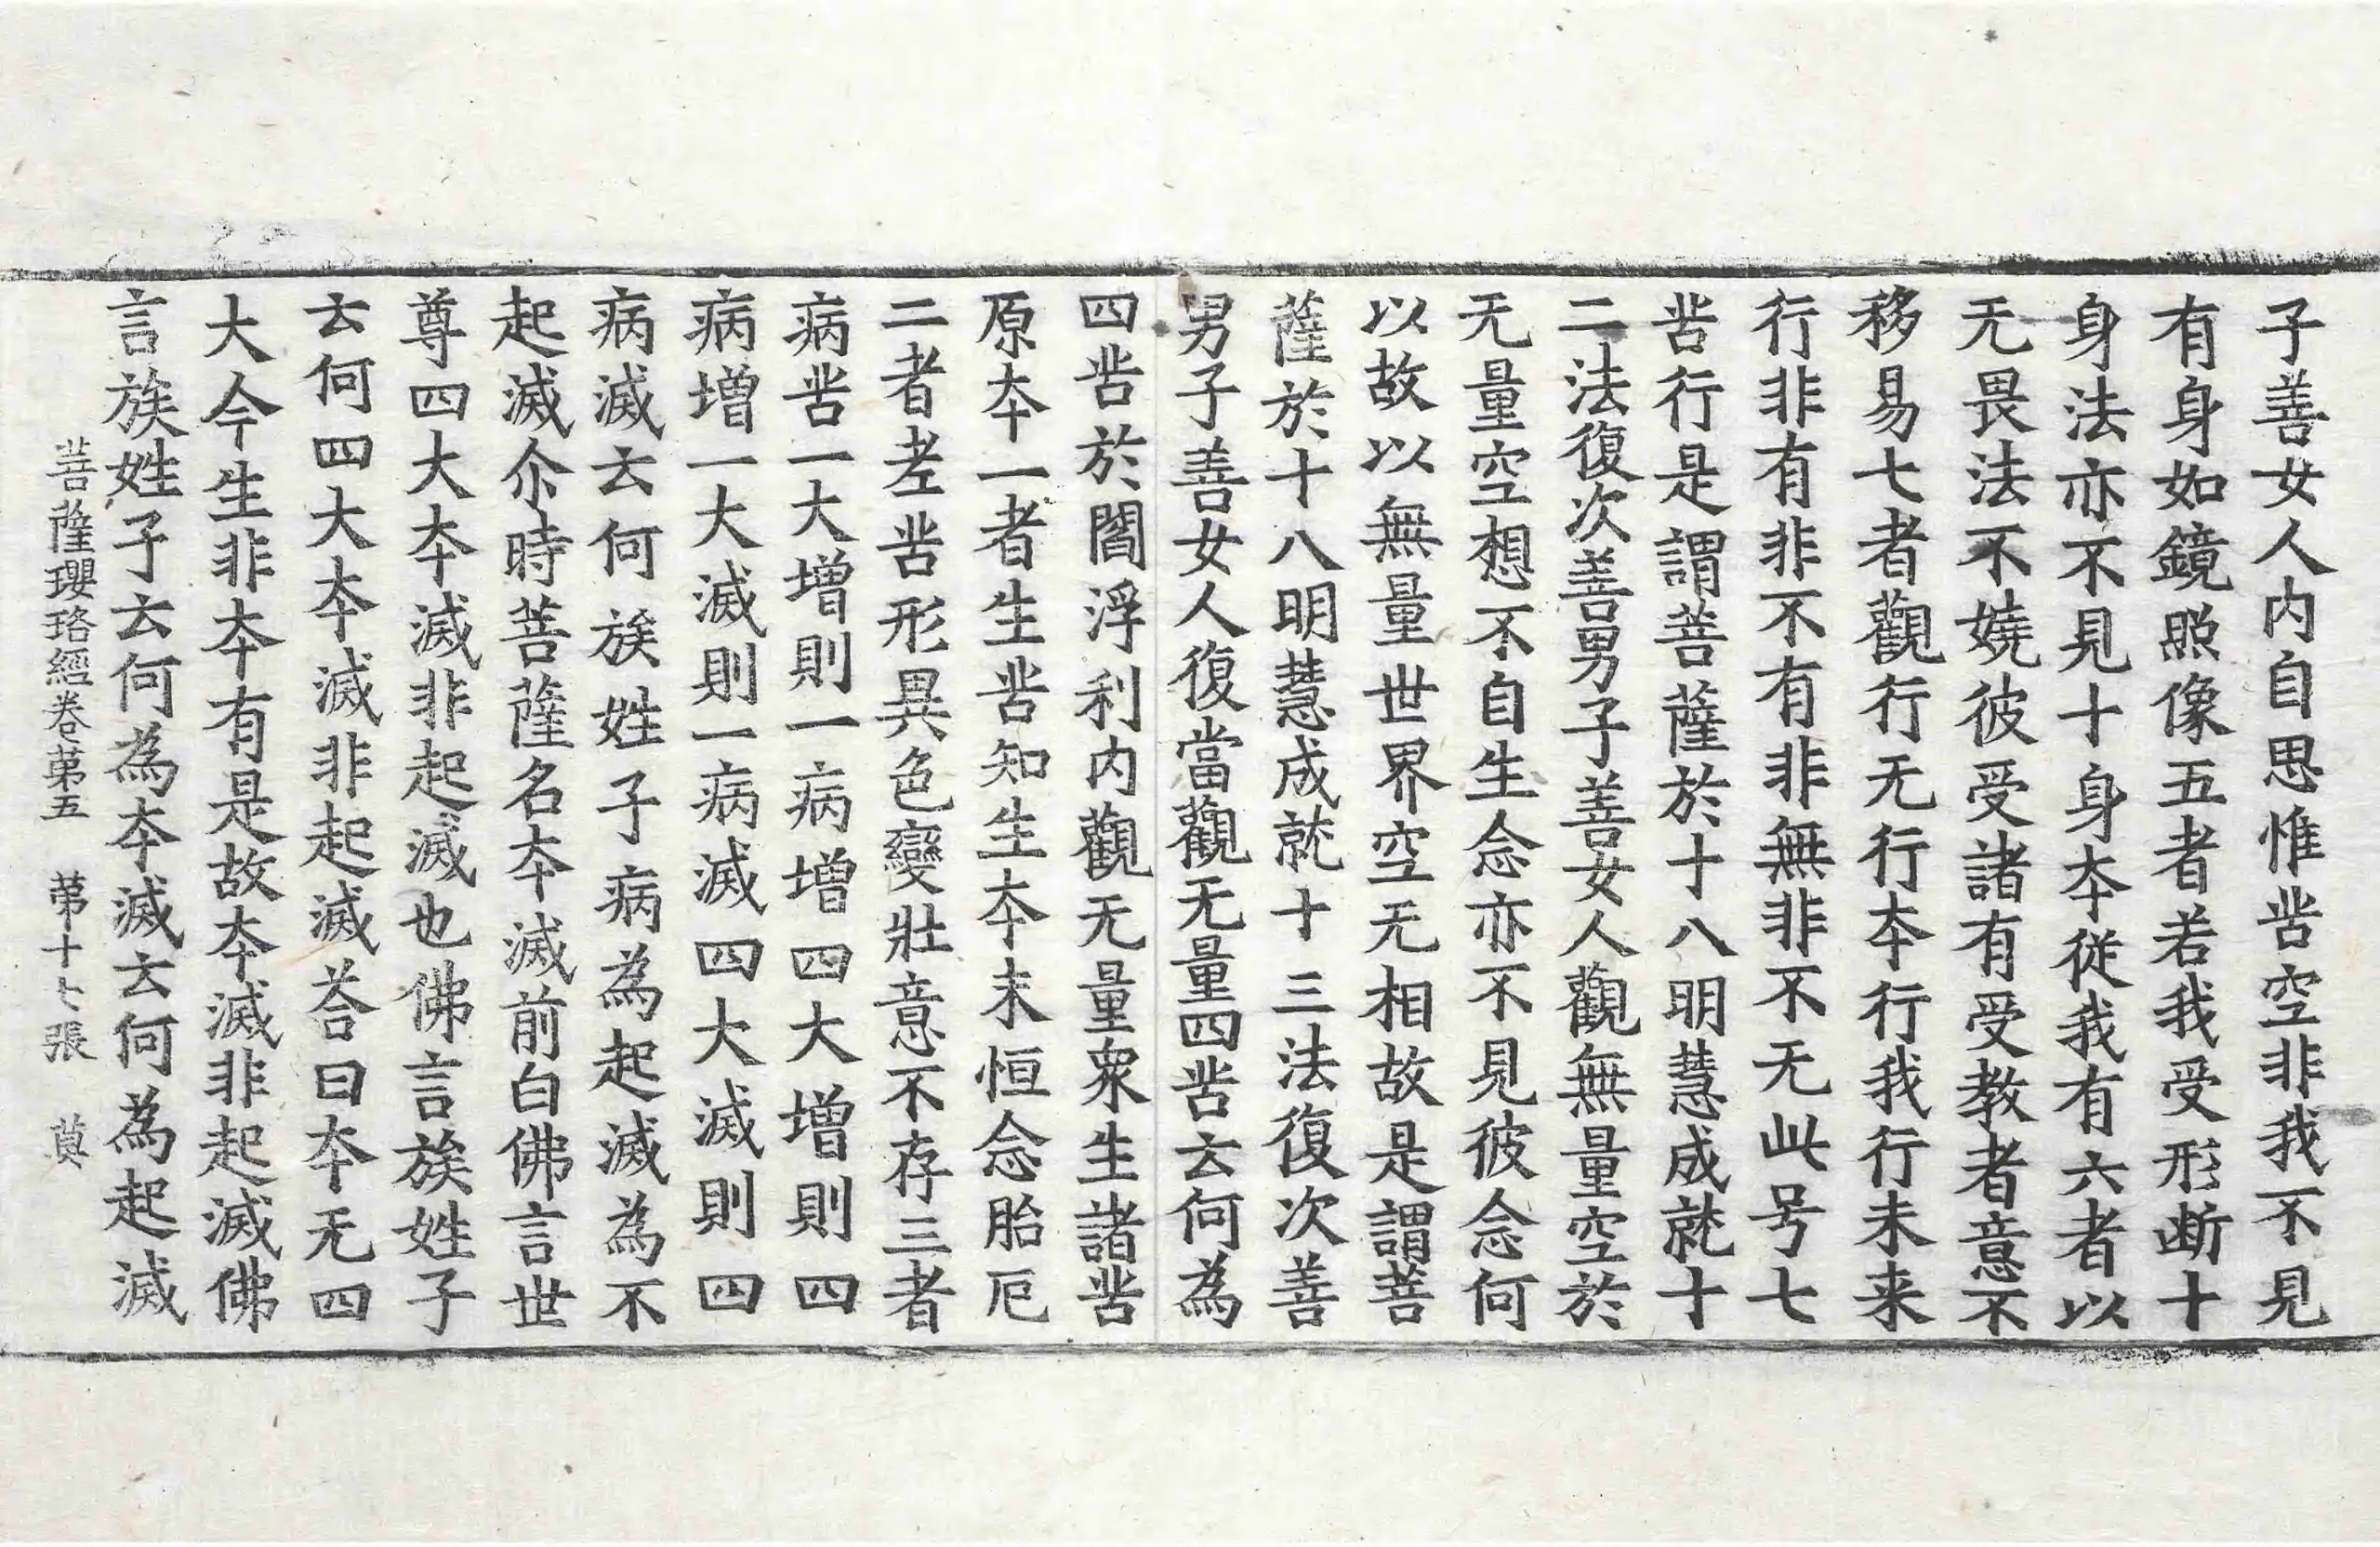 子善女人内自思惟苦空非我不見
有身如鏡照像五者若我受形断十
身法亦不見十身夲從我有六者以
无畏法不嬈彼受諸有受教者意不
移易七者觀行无行夲行我行未来
行非有非不有非無非不无此号七
苦行是謂菩薩於十八明慧成就十
二法復次善男子善女人觀無量空於
无量空想不自生念亦不見彼念何
以故以無量世界空无相故是謂菩
薩於十八明慧成就十三法復次善
男子善女人復當觀无量四苦云何為
四苦於閻浮利内觀无量衆生諸苦
原夲一者生苦知生夲末恒念胎厄
二者老苦形異色變壯意不存三者
病苦一大增則一病增四大增則四
病增一大滅則一病滅四大滅則四
病滅云何族姓子病為起滅為不
起滅尒時菩薩名夲滅前白佛言世
尊四大夲滅非起滅也佛言族姓子
云何四大夲滅非起滅荅曰夲无四
大今生非夲有是故夲滅非起滅佛
言族姓子云何為夲滅云何為起滅
菩薩瓔珞經卷第五 第十七張 莫